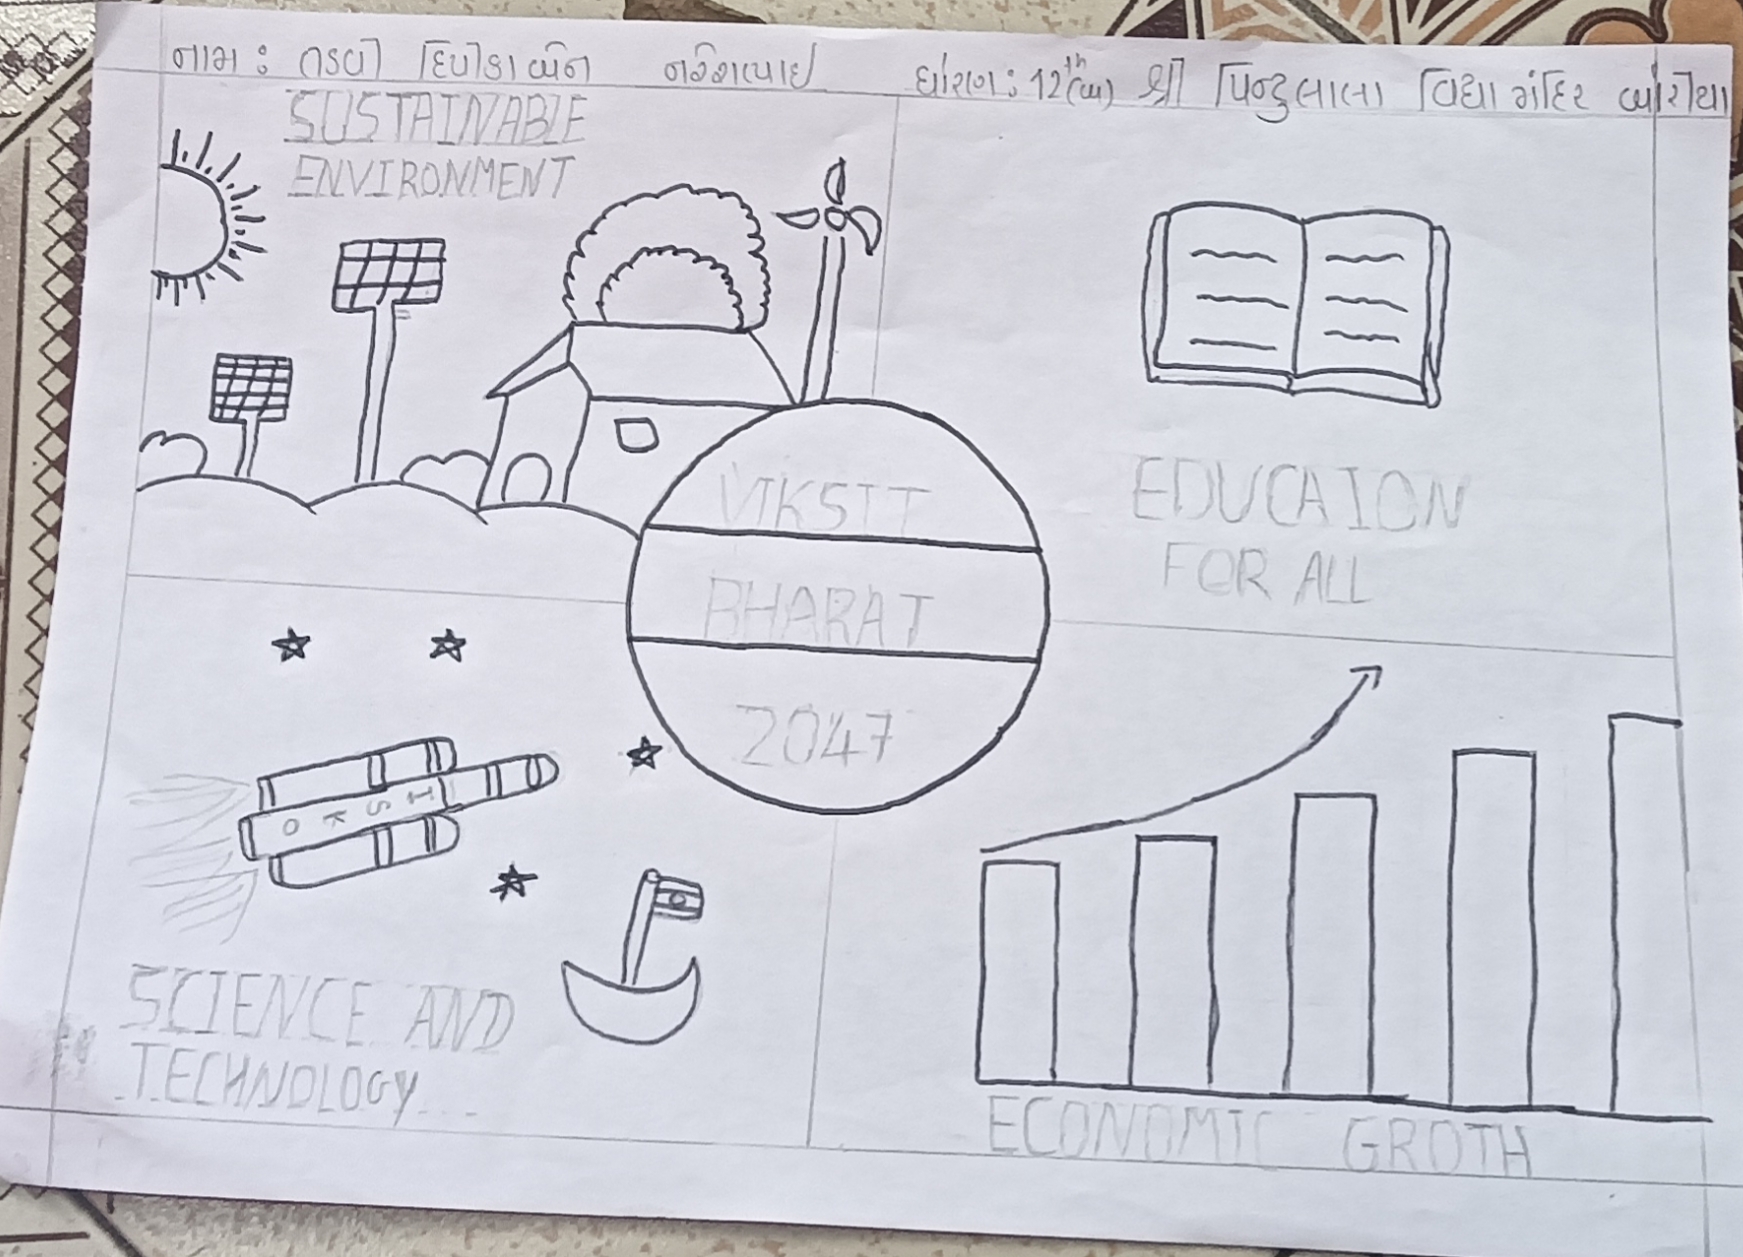 નામ : તડવી દિપીકાબેન નગીનભાઈ ધોરણ : 12th (બ) શ્રી પિન્ટુલાલા વિદ્યા મંદિર
SUSTAINABLE
ENVIRONMENT
EDUCAION
FOR ALL
VIKSIT
BHARAT
2047
I S R O
SCIENCE AND
TECHNOLOGY
ECONOMIC GROTH